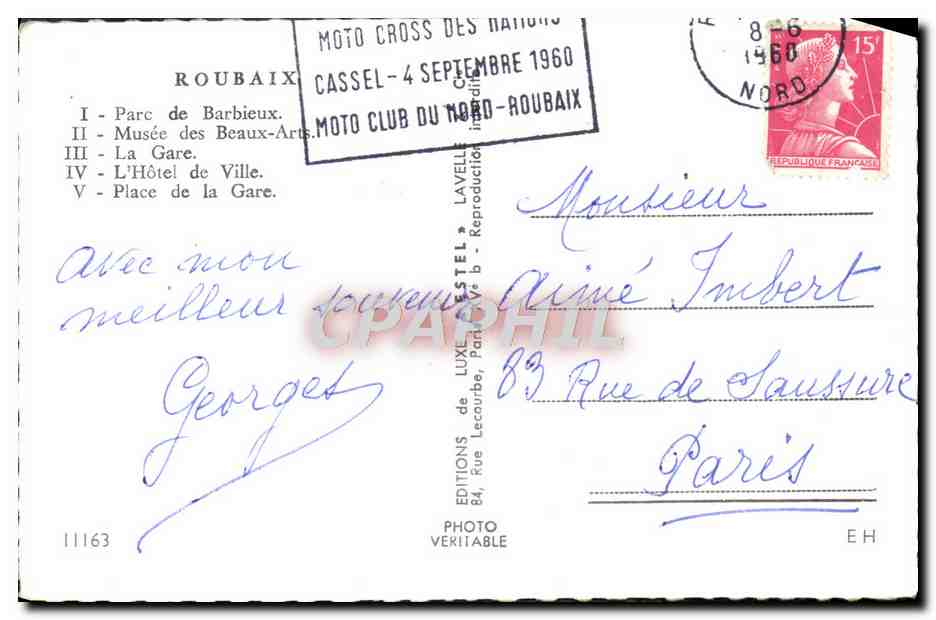 MOTO CROSS DES NATIONS
CASSEL - 4 SEPTEMBRE 1960
MOTO CLUB DU NORD - ROUBAIX
8-6
1960
NORD
15F
REPUBLIQUE FRANÇAISE
ROUBAIX
I - Parc de Barbieux.
II - Musée des Beaux-Arts.
III - La Gare.
IV - L'Hôtel de Ville.
V - Place de la Gare.
avec mon
meilleur souvenir
Georges
EDITIONS de LUXE « ESTEL » LAVELLE
84, Rue Lecourbe, Paris XVe b - Reproduction interdite
Monsieur
Aimé Imbert
83 Rue de Saussure
Paris
CPAPHIL
11163
PHOTO
VERITABLE
EH